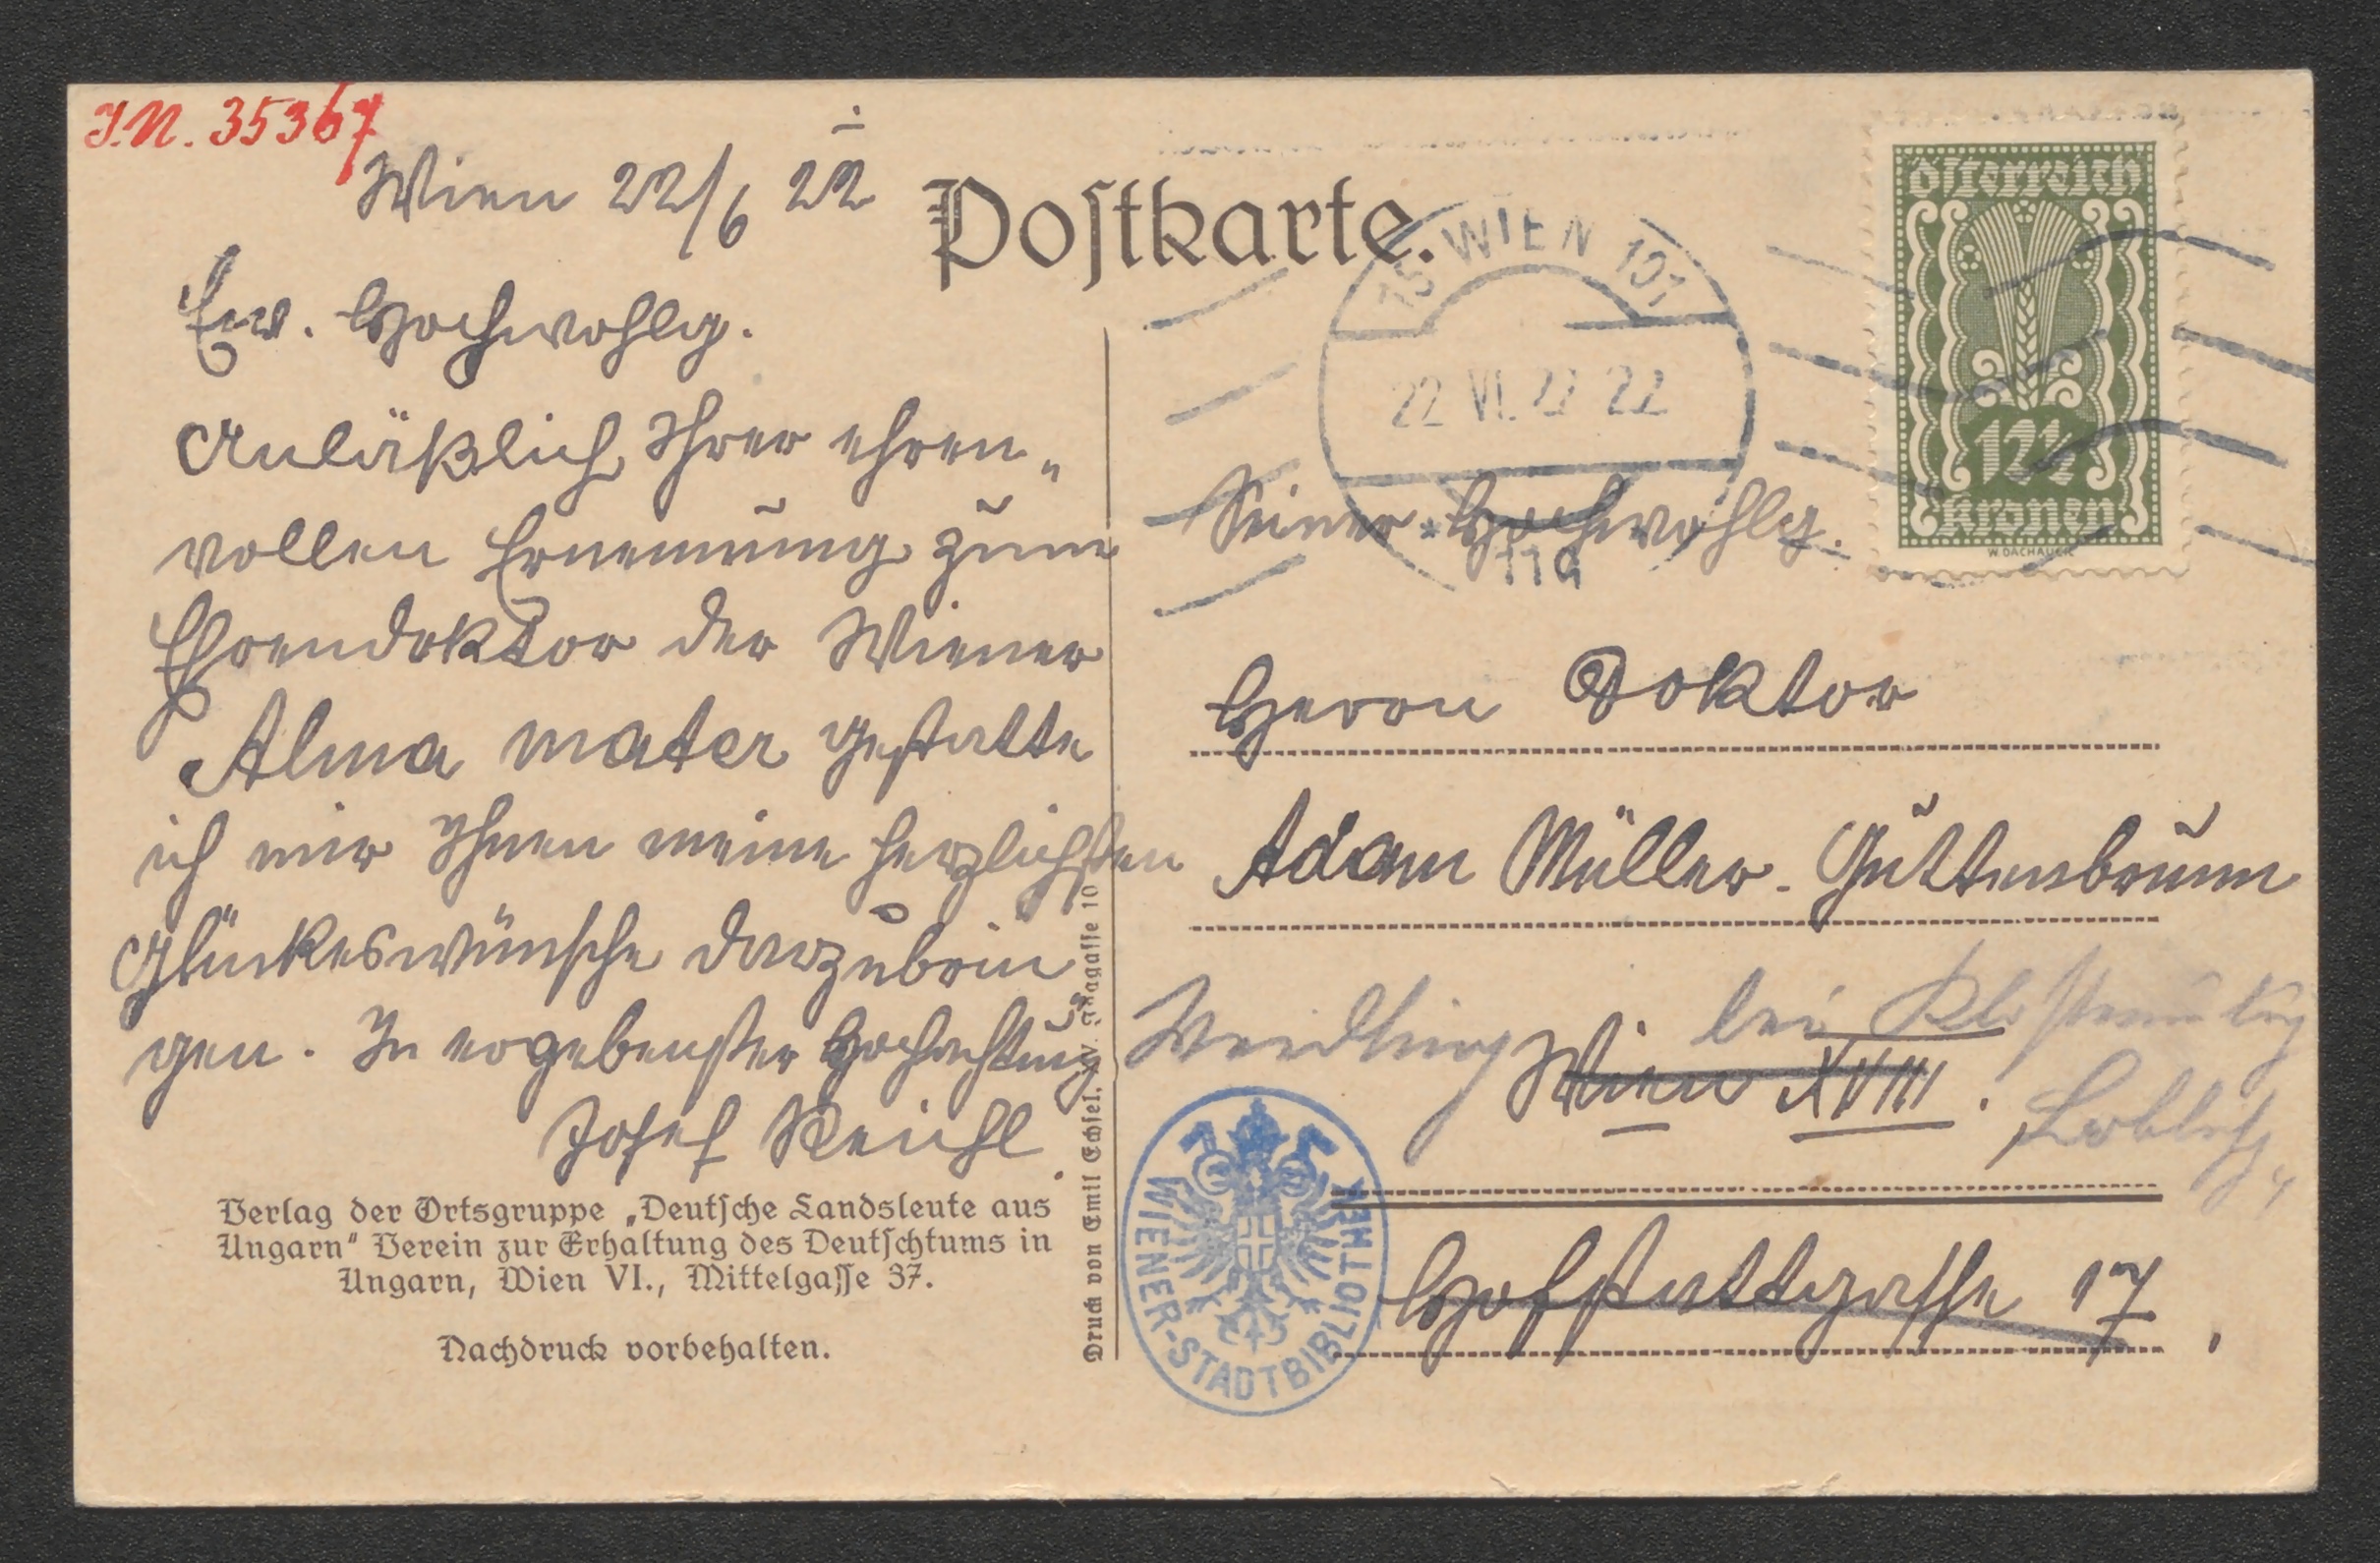 J.N. 35367
Wien 22/6 22
Ew. Hochwohlg.
Anläßlich Ihrer ehren„
vollen Ernennung zum
Ehrendoktor der Wiener
Alma mater gestatte
ich mir Ihnen meine herzlichsten
Glückeswünsche darzubrin„
gen. In ergebenster Hochachtung
Josef Reichl.
Verlag der Ortsgruppe „Deutsche Landsleute aus
Ungarn" Verein zur Erhaltung des Deutschtums in
Ungarn, Wien VI., Mittelgasse 37.
Nachdruck vorbehalten.
Druck von Emil Echsel. IV. 10
Postkarte.
15 WIEN 101
22 VI. 22 22
* 11a *
Österreich
12½
Kronen
W. DACHAUER
Seiner Hochwohlg.
Herrn Doktor
Adam Müller-Guttenbrunn
Weidling bei Klosterneubg
Wien XVIII.
Hofstattgasse 17.
WIENER-STADTBIBLIOTHEK